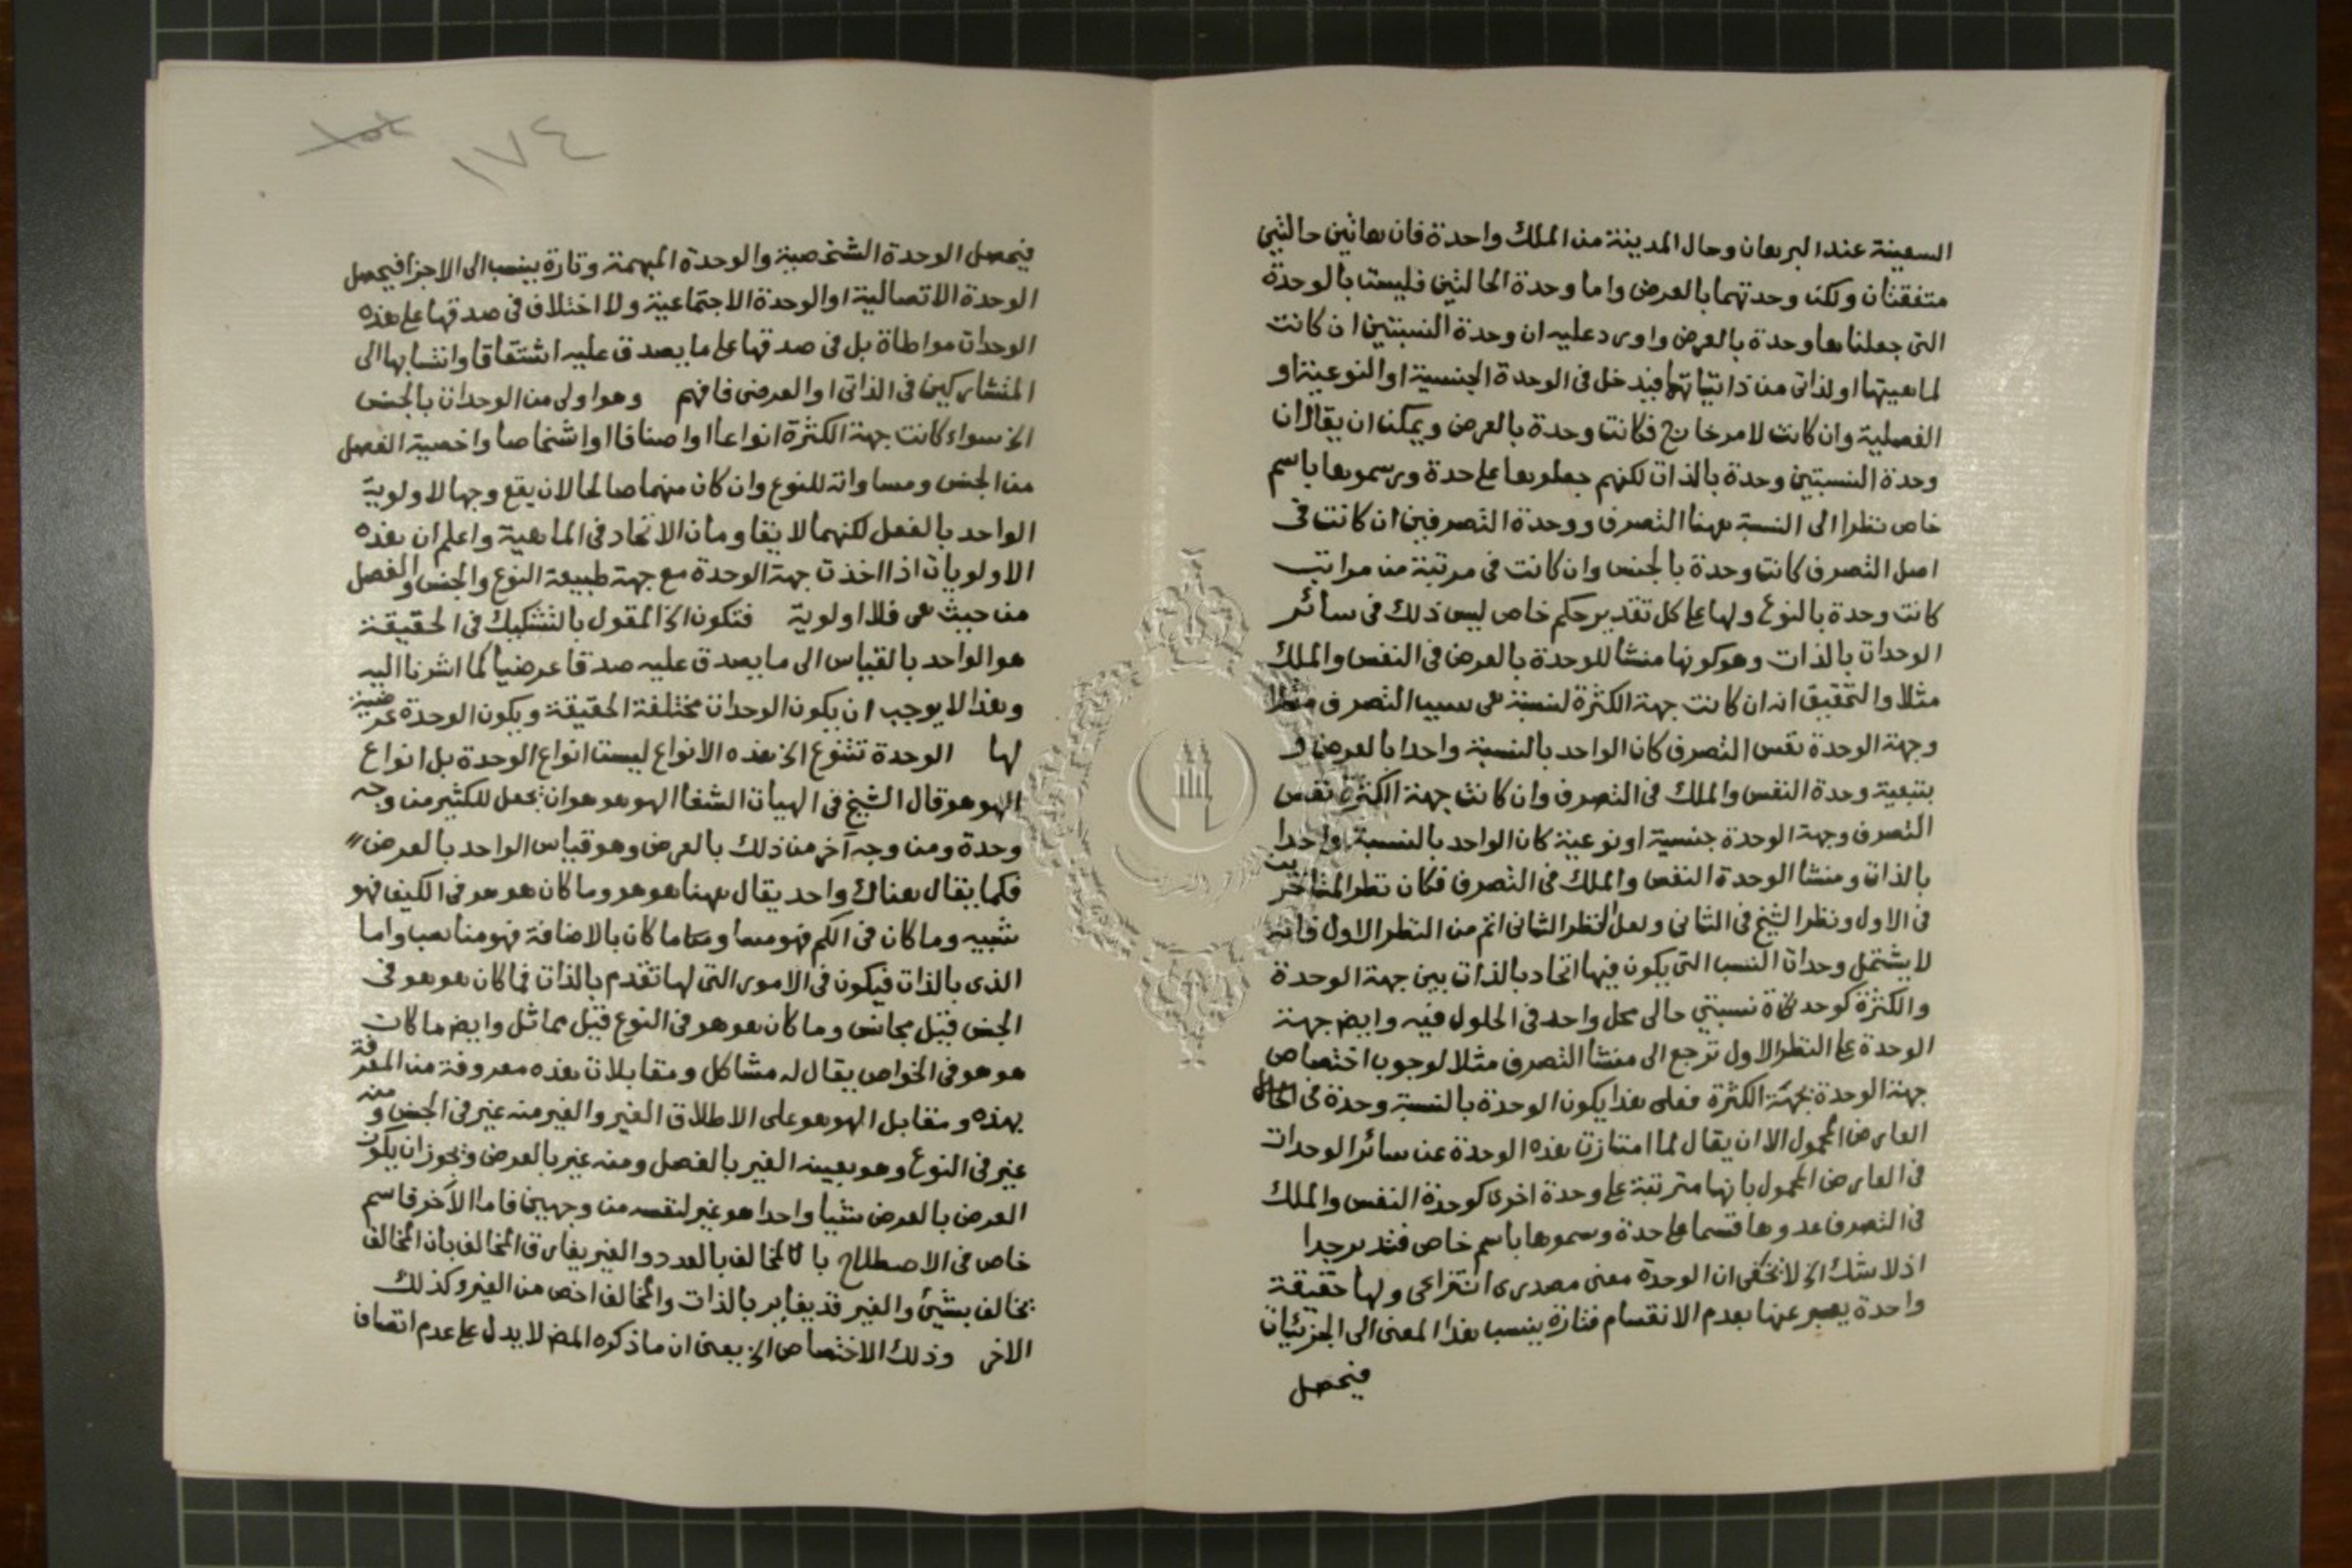 السفينة عند الربان وحال المدينة من الملك واحدة فان هاتين حالتين
متفقتان ولكن وحدتهما بالعرض واما وحدة الحالتين فليست بالوحدة
التى جعلناها وحدة بالعرض واورد عليه ان وحدة النسبتين ان كانت
لماهيتها او لذاتى من ذاتياتها فيدخل فى الوحدة الجنسية او النوعية او
الفصلية وان كانت لامر خارج فكانت وحدة بالعرض ويمكن ان يقال ان
وحدة النسبتين وحدة بالذات لكنهم جعلوها على حدة ورسموها باسم
خاص نظرا الى النسبة ههنا التصرف ووحدة التصرفين ان كانت فى
اصل التصرف كانت وحدة بالجنس وان كانت فى مرتبة من مراتب
كانت وحدة بالنوع ولها على كل تقدير حكم خاص ليس ذلك فى سائر
الوحدات بالذات وهو كونها منشأ للوحدة بالعرض فى النفس والملك
مثلا والتحقيق انه ان كانت جهة الكثرة لنسبة هى سبب التصرف مثلا
وجهة الوحدة نفس التصرف كان الواحد بالنسبة واحدا بالعرض و
بتبعية وحدة النفس والملك فى التصرف وان كانت جهة الكثرة نفس
التصرف وجهة الوحدة جنسية او نوعية كان الواحد بالنسبة واحدا
بالذات ومنشأ الوحدة النفس والملك فى التصرف فكان نظر المتأخرين
فى الاول ونظر الشيخ فى الثانى ولعل النظر الثانى اتم من النظر الاول فانه
لا يشتمل وحدات النسب التى يكون فيها اتحاد بالذات بين جهة الوحدة
والكثرة كوحدة نسبتي حالى محل واحد فى الحلول فيه وايضا جهة
الوحدة على النظر الاول ترجع الى منشأ التصرف مثلا لوجوب اختصاص
جهة الوحدة بجهة الكثرة فعلى هذا يكون الوحدة بالنسبة وحدة فى
العارض المحمول الا ان يقال لما امتازت هذه الوحدة عن سائر الوحدات
فى العارض المحمول بانها مترتبة على وحدة اخرى كوحدة النفس والملك
فى التصرف عدوها قسما على حدة وسموها باسم خاص فتدبر جدا
اذ لا شك الخ لا يخفى ان الوحدة معنى مصدرى انتزاعى ولها حقيقة
واحدة يعبر عنها بعدم الانقسام فتارة ينسب هذا المعنى الى الجزئيات
فيحصل
١٧٤
فيحصل الوحدة الشخصية والوحدة المبهمة وتارة ينسب الى الاجزا فيحصل
الوحدة الاتصالية او الوحدة الاجتماعية ولا اختلاف فى صدقها على هذه
الوحدات مواطاة بل فى صدقها على ما يصدق عليه اشتقاقا وانتسابها الى
المتشاركين فى الذاتى او العرضى فافهم وهو اولى من الوحدات بالجنس
الخ سواء كانت جهة الكثرة انواعا او اصنافا او اشخاصا واخصية الفصل
من الجنس ومساواته للنوع وان كان منهما صالحا لان يقع وجها لاولوية
الواحد بالفصل لكنهما لا يقاومان الاتحاد فى الماهية واعلم ان هذه
الاولويات اذا اخذت جهة الوحدة مع جهة طبيعة النوع والجنس والفصل
من حيث هى فلا اولوية فتكون الخ المقول بالتشكيك فى الحقيقة
هو الواحد بالقياس الى ما يصدق عليه صدقا عرضيا كما اشرنا اليه
وهذا لا يوجب ان يكون الوحدات مختلفة الحقيقة ويكون الوحدة عرضية
لها الوحدة تتنوع الخ هذه الانواع ليست انواع الوحدة بل انواع
الهو هو قال الشيخ فى الهيات الشفا الهو هو هو ان يجعل للكثير من وجه
وحدة ومن وجه آخر من ذلك بالعرض وهو قياس الواحد بالعرض
فكما يقال هناك واحد يقال ههنا هو هو وما كان هو هو فى الكيف فهو
شبيه وما كان فى الكم فهو مساو وما كان بالاضافة فهو مناسب واما
الذى بالذات فيكون فى الامور التى لها تقدم بالذات فما كان هو هو فى
الجنس قيل مجانس وما كان هو هو فى النوع قيل مماثل وايضا ما كان
هو هو فى الخواص يقال له مشاكل ومقابلات هذه معروفة من المعرفة
بهذه ومقابل الهو هو على الاطلاق الغير والغير منه غير فى الجنس ومنه
غير فى النوع وهو بعينه الغير بالفصل ومنه غير بالعرض ويجوز ان يكون
العرض بالعرض شيا واحدا هو غير لنفسه من وجهين فاما الآخر فاسم
خاص فى الاصطلاح بالمخالف بالعدد والغير يفارق المخالف بأن المخالف
يخالف بشئ والغير قد يغاير بالذات والمخالف اخص من الغير وكذلك
الاخر وذلك الاختصاص الخ يعنى ان ما ذكره المص لا يدل على عدم اتصاف